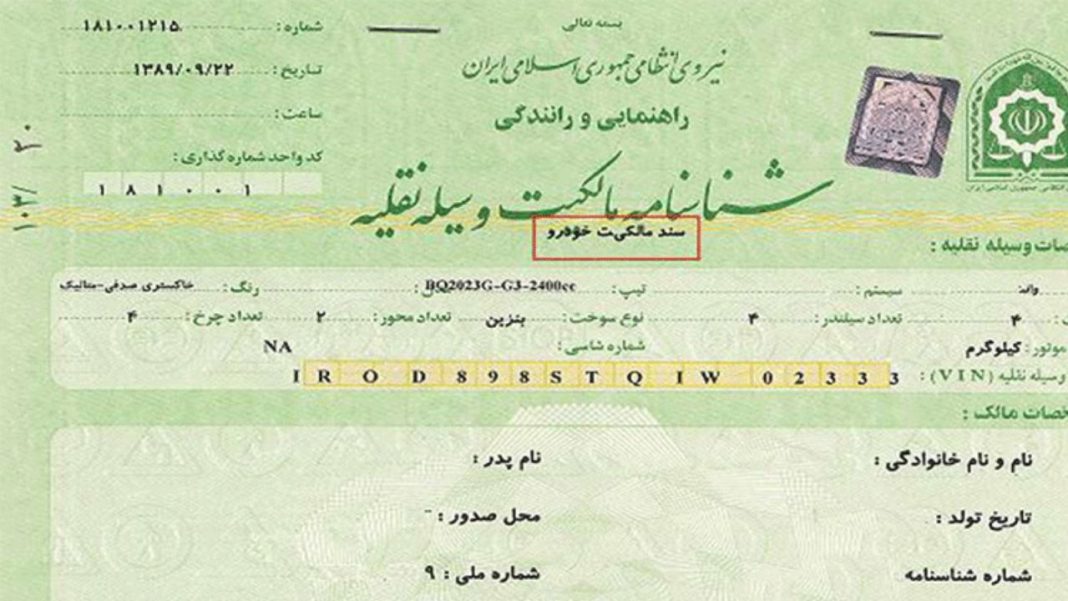 بسمه تعالی
نیروی انتظامی جمهوری اسلامی ایران
راهنمایی و رانندگی
شناسنامه مالکیت وسیله نقلیه
سند مالکیت خودرو
شماره: ۱۸۱۰۰۱۲۱۵
تاریخ: ۱۳۸۹/۰۹/۲۲
ساعت:
کد واحد شماره گذاری:
۱ ۸ ۱ ۰ ۰ ۱
صات وسیله نقلیه:
وانت سیستم: تیپ: BQ2023G-G3-2400cc رنگ: خاکستری صدفی-متالیک
۴ تعداد سیلندر: ۴ نوع سوخت: بنزین تعداد محور: ۲ تعداد چرخ: ۴
موتور: کیلوگرم شماره شاسی: NA
وسیله نقلیه (VIN): I R O D 8 9 8 S T Q I W 0 2 3 3 3
خصات مالک:
نام و نام خانوادگی: نام پدر:
تاریخ تولد: محل صدور: -
شماره شناسنامه شماره ملی: ۹